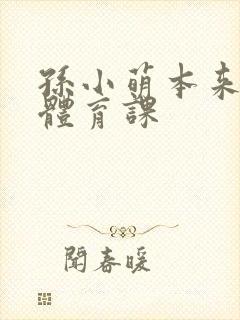 孫小萌本来
體育課
聞春暖